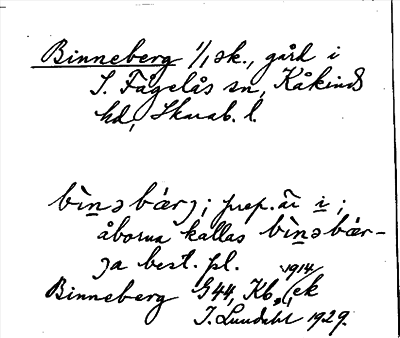 Binneberg 1/1 sk., gård i
S. Fågelås sn, Kåkinds
hd, Skarab. l.
bìnəbær̀j; prep. är i;
åborna kallas bìnəbær-
ja best. pl.
Binneberg G44, Kb., 1914 ek
I. Lundahl 1929.